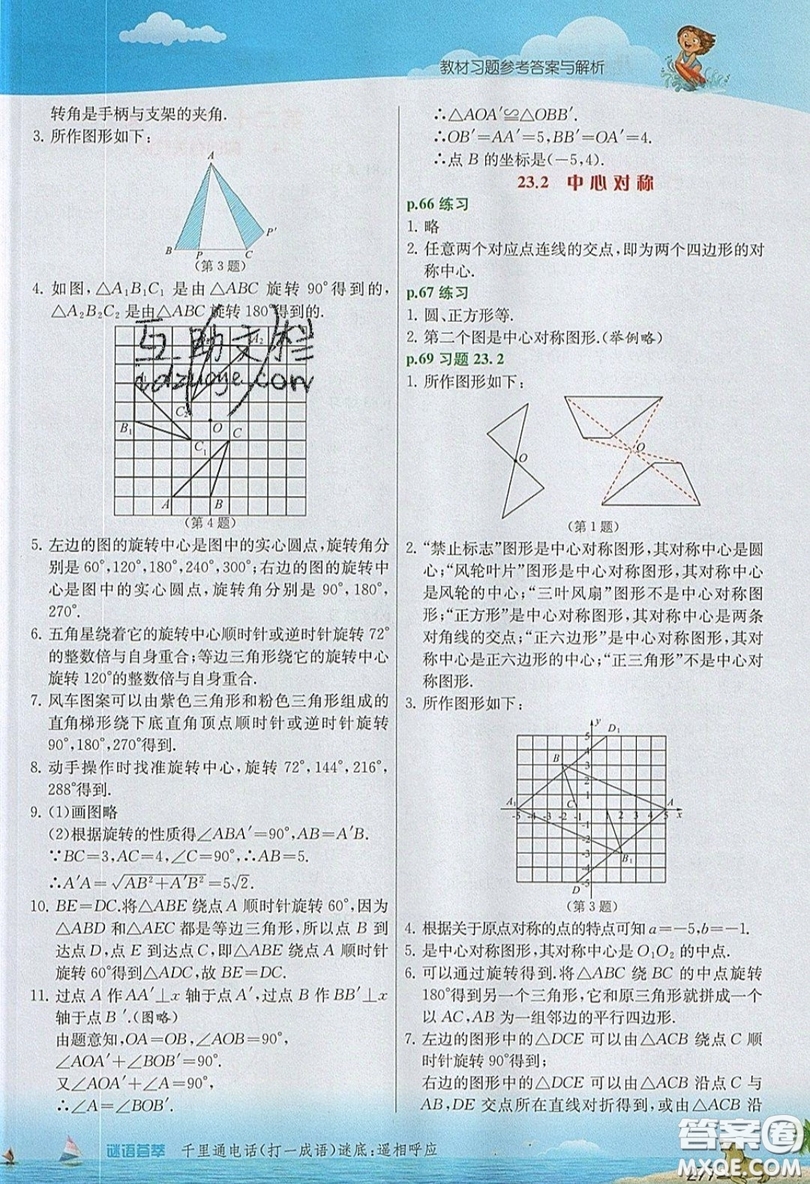 教材习题参考答案与解析
转角是手柄与支架的夹角.
3. 所作图形如下:
A
B
P
C
P′
(第3题)
4. 如图,△A₁B₁C₁ 是由△ABC 旋转 90°得到的,
△A₂B₂C₂ 是由△ABC 旋转 180°得到的.
互助文栏
A₂
C₂
B₁
O
C₁
C
A
B
(第4题)
5. 左边的图的旋转中心是图中的实心圆点,旋转角分
别是 60°,120°,180°,240°,300°;右边的图的旋转中
心是图中的实心圆点,旋转角分别是 90°,180°,
270°.
6. 五角星绕着它的旋转中心顺时针或逆时针旋转 72°
的整数倍与自身重合;等边三角形绕它的旋转中心
旋转 120°的整数倍与自身重合.
7. 风车图案可以由紫色三角形和粉色三角形组成的
直角梯形绕下底直角顶点顺时针或逆时针旋转
90°,180°,270°得到.
8. 动手操作时找准旋转中心,旋转 72°,144°,216°,
288°得到.
9. (1)画图略
(2)根据旋转的性质得∠ABA′=90°,AB=A′B.
∵BC=3,AC=4,∠C=90°,∴AB=5.
∴A′A=√(AB²+A′B²)=5√2.
10. BE=DC.将△ABE 绕点 A 顺时针旋转 60°,因为
△ABD 和△AEC 都是等边三角形,所以点 B 到
达点 D,点 E 到达点 C,即△ABE 绕点 A 顺时针
旋转 60°得到△ADC,故 BE=DC.
11. 过点 A 作 AA′⊥x 轴于点 A′,过点 B 作 BB′⊥x
轴于点 B′.(图略)
由题意知,OA=OB,∠AOB=90°,
∠AOA′+∠BOB′=90°.
又∠AOA′+∠A=90°,
∴∠A=∠BOB′.
∴△AOA′≌△OBB′.
∴OB′=AA′=5,BB′=OA′=4.
∴点 B 的坐标是(-5,4).
23.2 中心对称
p.66 练习
1. 略
2. 任意两个对应点连线的交点,即为两个四边形的对
称中心.
p.67 练习
1. 圆、正方形等.
2. 第二个图是中心对称图形.(举例略)
p.69 习题 23.2
1. 所作图形如下:
O
O
(第1题)
2. “禁止标志”图形是中心对称图形,其对称中心是圆
心;“风轮叶片”图形是中心对称图形,其对称中心
是风轮的中心;“三叶风扇”图形不是中心对称图
形;“正方形”是中心对称图形,其对称中心是两条
对角线的交点;“正六边形”是中心对称图形,其对
称中心是正六边形的中心;“正三角形”不是中心对
称图形.
3. 所作图形如下:
y
D₁
B
A₁
A
x
B₁
D
(第3题)
4. 根据关于原点对称的点的特点可知 a=-5,b=-1.
5. 是中心对称图形,其对称中心是 O₁O₂ 的中点.
6. 可以通过旋转得到.将△ABC 绕 BC 的中点旋转
180°得到另一个三角形,它和原三角形就拼成一个
以 AC,AB 为一组邻边的平行四边形.
7. 左边的图形中的△DCE 可以由△ACB 绕点 C 顺
时针旋转 90°得到;
右边的图形中的△DCE 可以由△ACB 沿点 C 与
AB,DE 交点所在直线对折得到,或由△ACB 先
谜语荟萃 千里通电话(打一成语)谜底:遥相呼应
答案圈
MXQE.COM